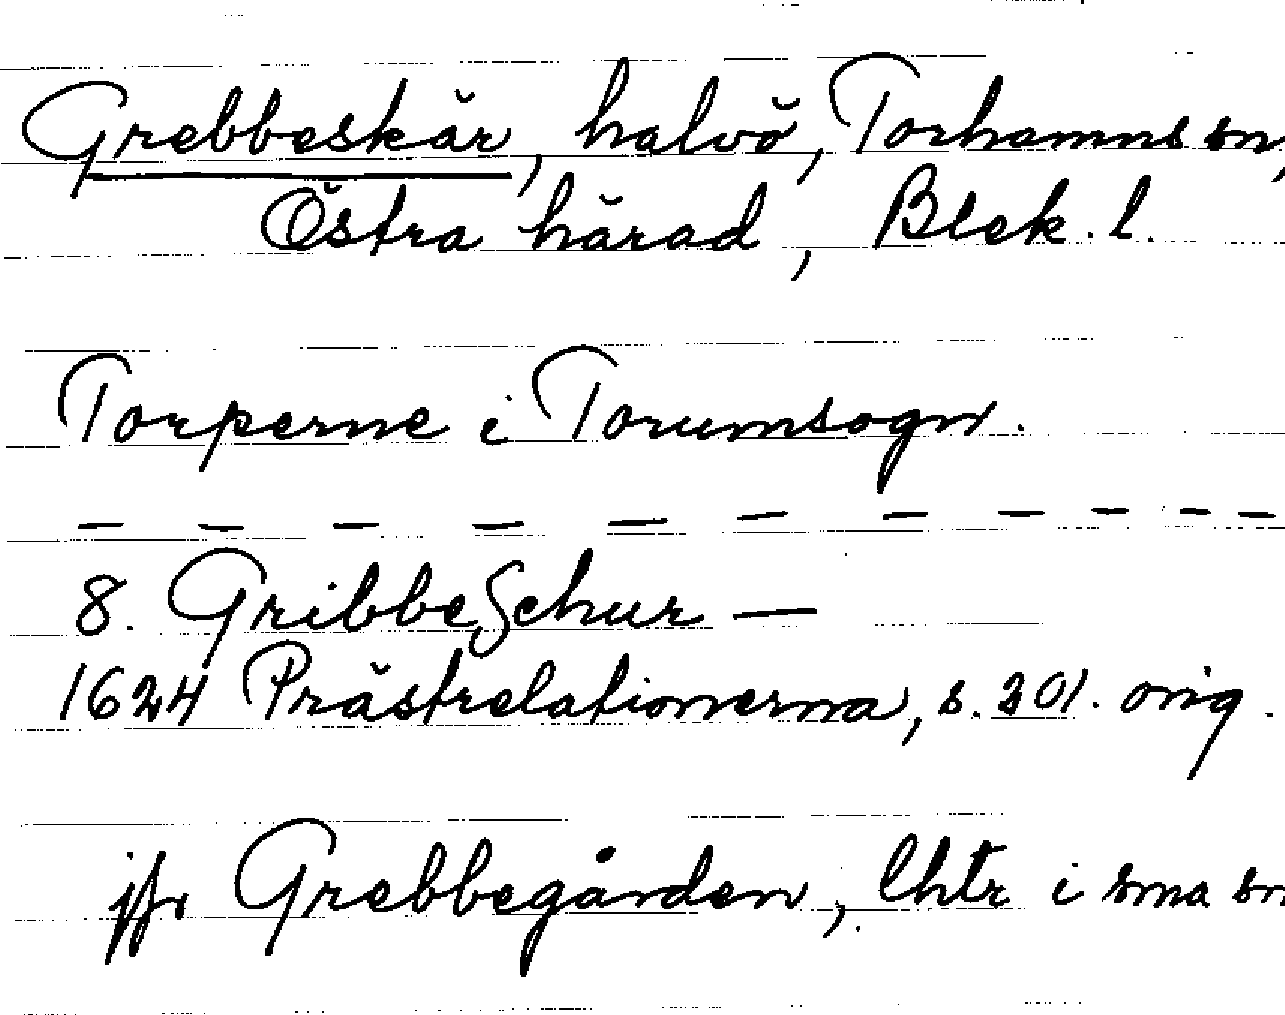 Grebbeskär, halvö, Torhamns sn,
Östra härad, Blek. l.
Torperne i Torumsogn.
– – – – – – – – – – –
8. Gribbeschur —
1624 Prästrelationerna, s. 201. orig.
jfr Grebbegården, lhtr i sma sn